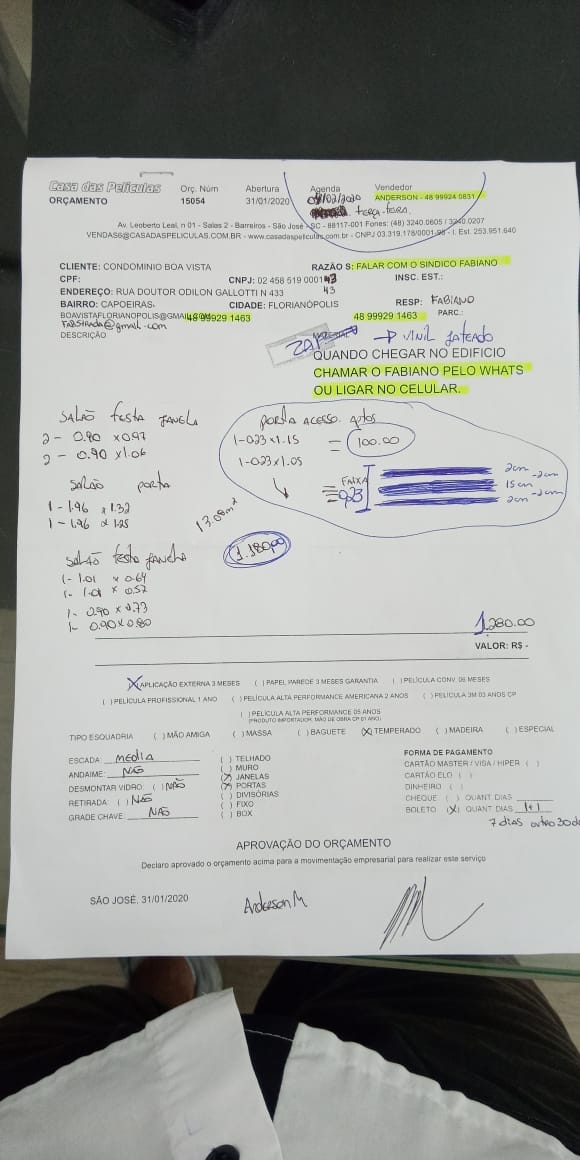 Casa das Películas Orç. Núm Abertura Agenda Vendedor
ORÇAMENTO 15054 31/01/2020 04/02/2020 ANDERSON - 48 99924 0831
terça-feira.
Av, Leoberto Leal, n 01 - Salas 2 - Barreiros - São José - SC - 88117-001 Fones: (48) 3240.0605 / 3240.0207
VENDAS6@CASADASPELICULAS.COM.BR - www.casadaspeliculas.com.br - CNPJ 03.319.178/0001-95 - I. Est. 253.951.640
CLIENTE: CONDOMINIO BOA VISTA RAZÃO S: FALAR COM O SINDICO FABIANO
CPF: CNPJ: 02 458 519 0001 43 INSC. EST.:
ENDEREÇO: RUA DOUTOR ODILON GALLOTTI N 433 43
BAIRRO: CAPOEIRAS CIDADE: FLORIANÓPOLIS RESP: FABIANO
BOAVISTAFLORIANOPOLIS@GMAIL.COM 48 99929 1463 48 99929 1463 PARC.:
DESCRIÇÃO
ZAP → VINIL JATEADO
QUANDO CHEGAR NO EDIFICIO
CHAMAR O FABIANO PELO WHATS
OU LIGAR NO CELULAR.
SALÃO festa JANELA
2 - 0.90 x 0.97
2 - 0.90 x 1.06
PORTA ACESSO
1-0.23 x 1.15 = 100.00
1-0.23 x 1.05
FAIXA
= 0,23
2cm
-2cm
15cm
-2cm
2cm
SALÃO PORTA
1 - 1.96 x 1.32
1 - 1.96 x 1.25
13.08m²
1.180,00
SALÃO festa JANELA
1- 1.01 x 0.64
1- 1.01 x 0.52
1- 0.90 x 0.73
1- 0.90 x 0.80
1.280.00
VALOR: R$ -
(X) APLICAÇÃO EXTERNA 3 MESES ( ) PAPEL PAREDE 3 MESES GARANTIA ( ) PELÍCULA CONV. 06 MESES
( ) PELÍCULA PROFISSIONAL 1 ANO ( ) PELÍCULA ALTA PERFORMANCE AMERICANA 2 ANOS ( ) PELÍCULA 3M 03 ANOS CP
( ) PELÍCULA ALTA PERFORMANCE 05 ANOS
(PRODUTO IMPORTADOR, MÃO DE OBRA CP 01 ANO)
TIPO ESQUADRIA ( ) MÃO AMIGA ( ) MASSA ( ) BAGUETE (X) TEMPERADO ( ) MADEIRA ( ) ESPECIAL
ESCADA: MEDIA
ANDAIME: NÃO
DESMONTAR VIDRO: ( ) NÃO
RETIRADA: ( ) NÃO
GRADE CHAVE: NÃO
( ) TELHADO
( ) MURO
(X) JANELAS
(X) PORTAS
( ) DIVISÓRIAS
( ) FIXO
( ) BOX
FORMA DE PAGAMENTO
CARTÃO MASTER / VISA / HIPER ( )
CARTÃO ELO ( )
DINHEIRO ( )
CHEQUE ( ) QUANT DIAS
BOLETO (X) QUANT DIAS 1+1
7 dias outro 30 d
APROVAÇÃO DO ORÇAMENTO
Declaro aprovado o orçamento acima para a movimentação empresarial para realizar este serviço
SÃO JOSÉ, 31/01/2020
Anderson M